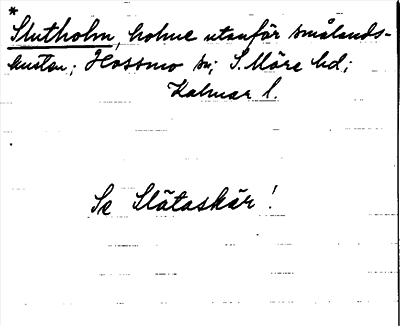 *
Slutholm, holme utanför smålands-
kusten; Hossmo sn; S. Möre hd;
Kalmar l.
Se Slätaskär!